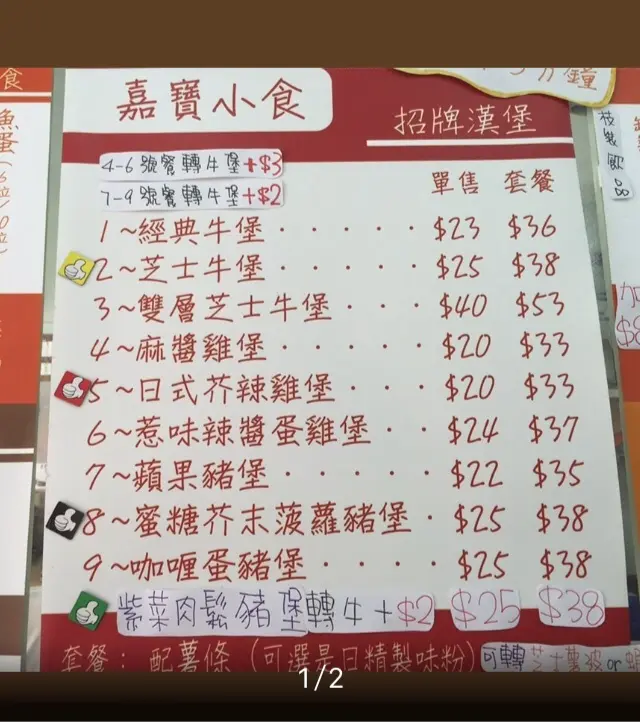 分鐘
嘉寶小食
招牌漢堡
4-6 號餐轉牛堡+$3
7-9 號餐轉牛堡+$2
單售 套餐
1~經典牛堡 · · · · · $23 $36
2~芝士牛堡 · · · · · $25 $38
3~雙層芝士牛堡 · · · $40 $53
4~麻醬雞堡 · · · · · $20 $33
5~日式芥辣雞堡 · · · $20 $33
6~惹味辣醬蛋雞堡 · · $24 $37
7~蘋果豬堡 · · · · · $22 $35
8~蜜糖芥末菠蘿豬堡 · $25 $38
9~咖喱蛋豬堡 · · · · $25 $38
紫菜肉鬆豬堡轉牛+$2 $25 $38
套餐：配薯條（可選是日精製味粉）可轉芝士薯波or
1/2
食
魚蛋
枝裝飲品
加